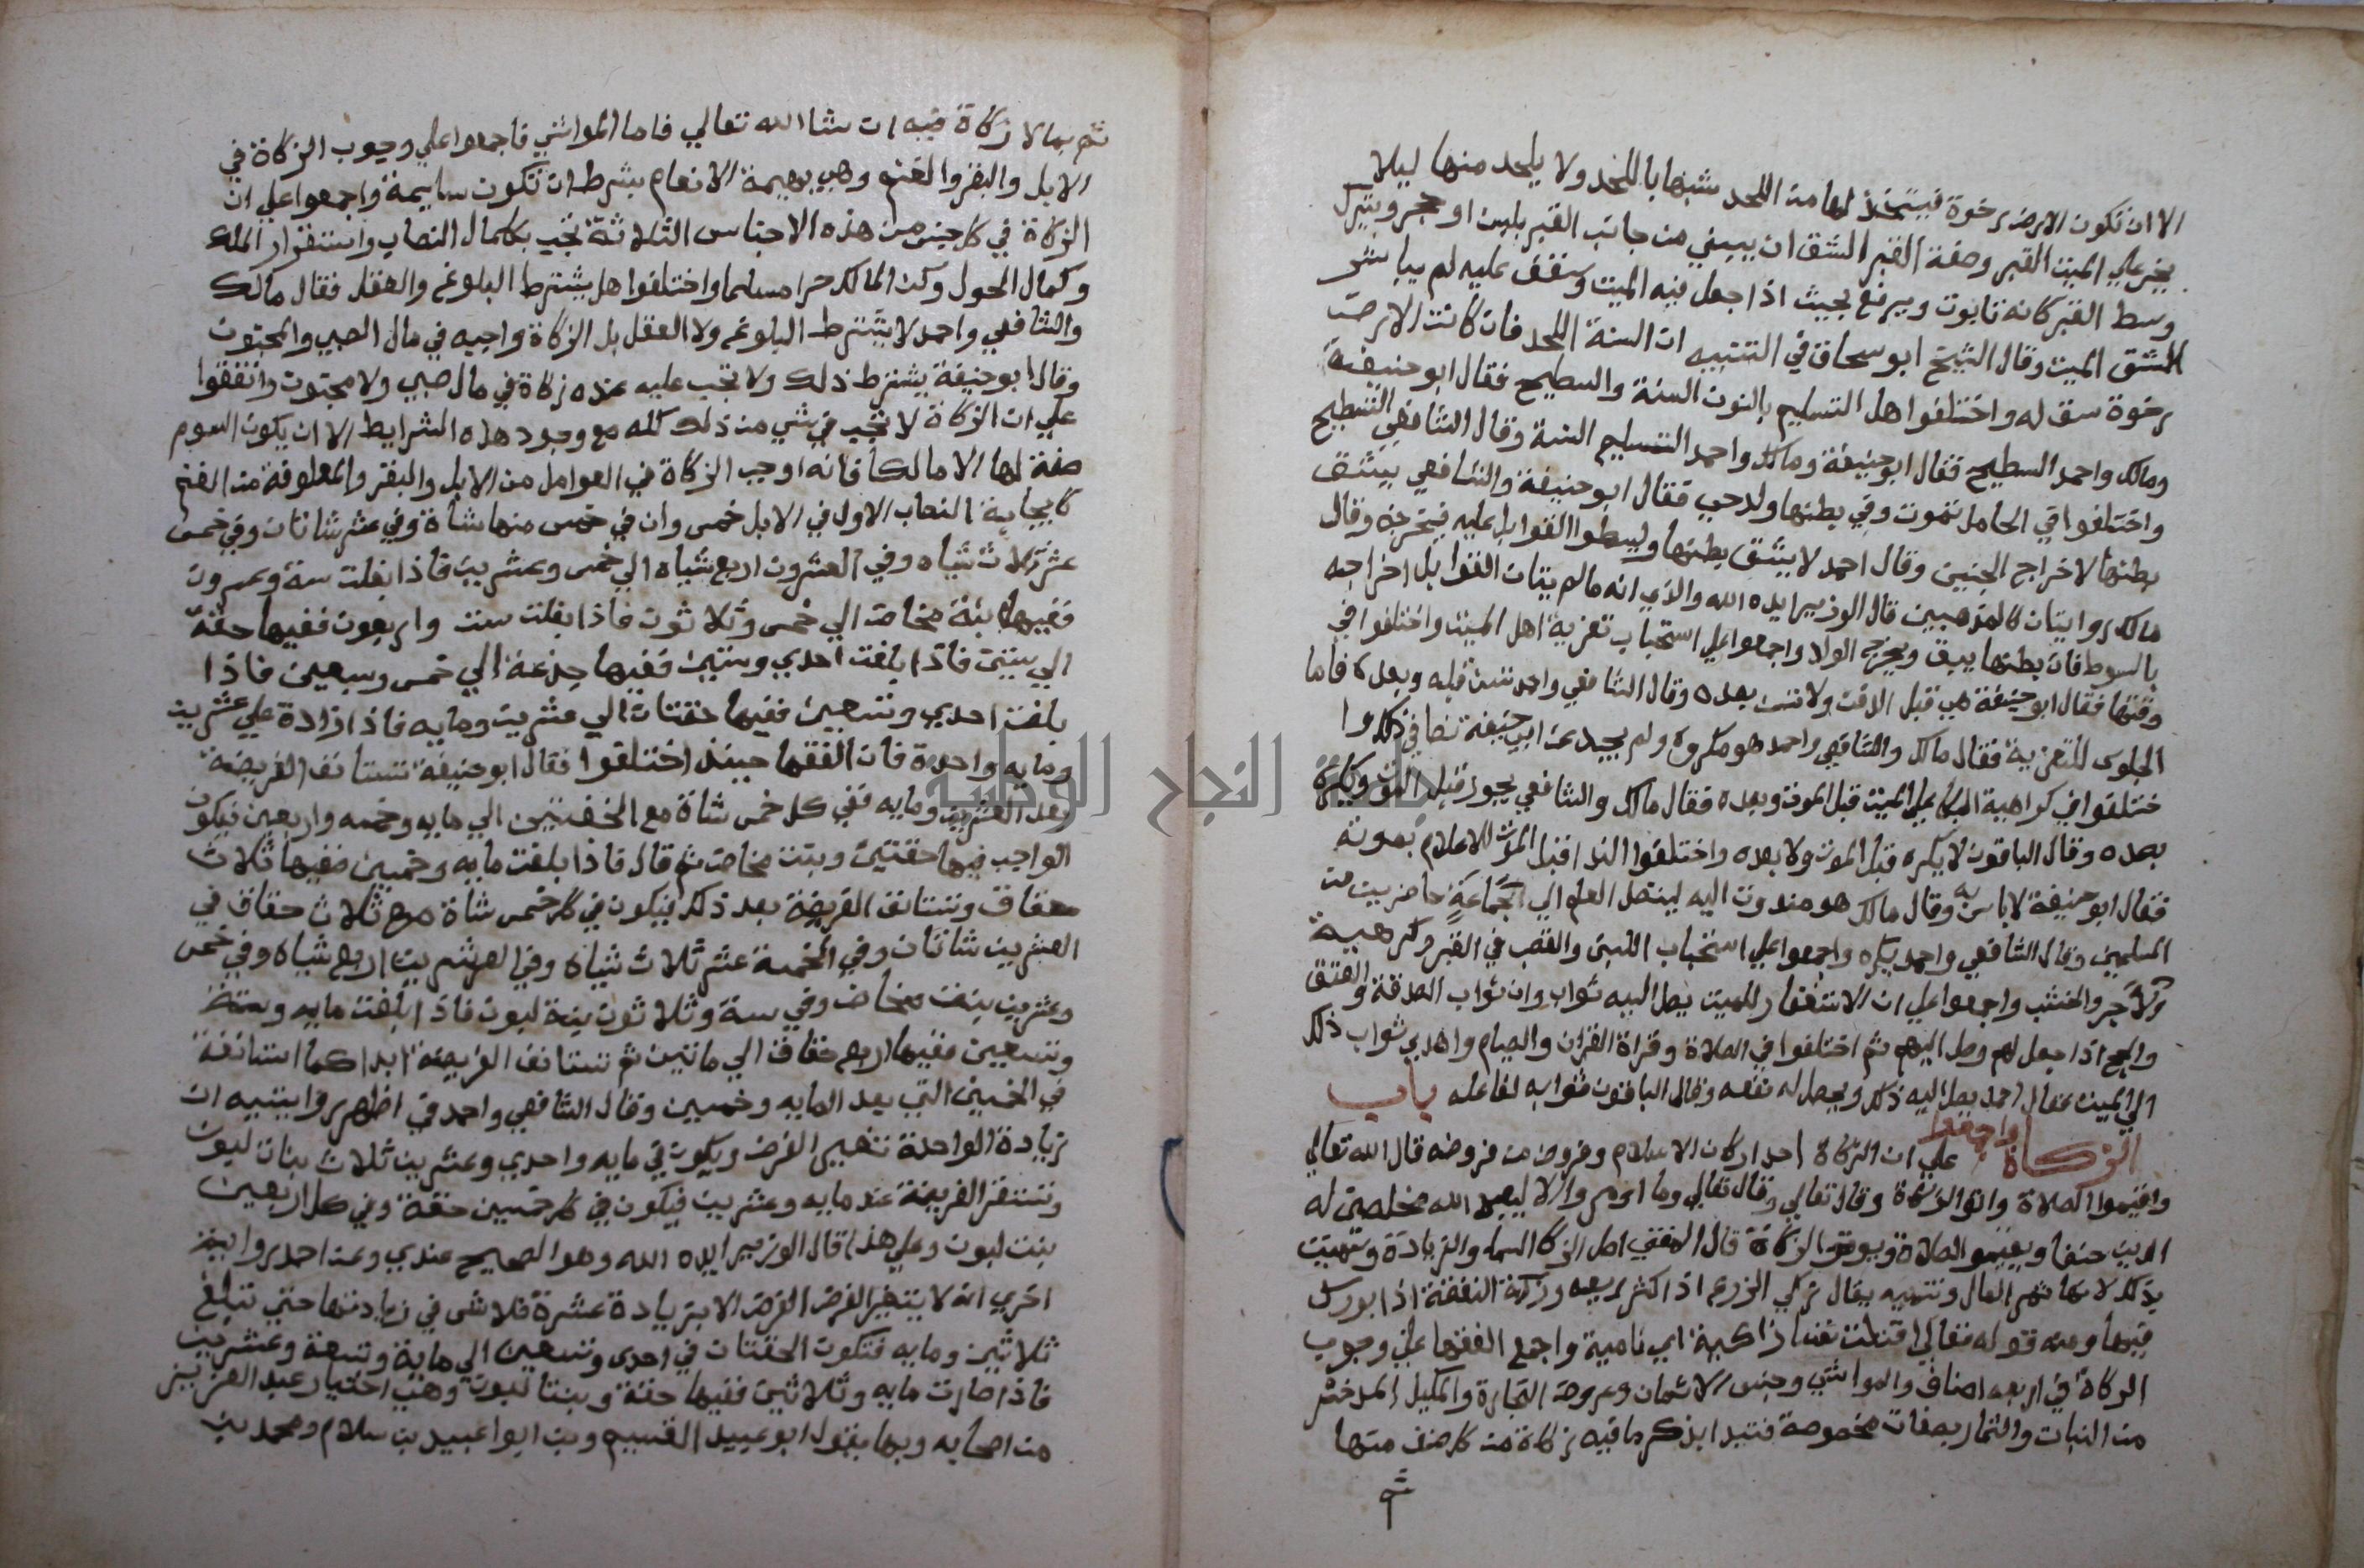 الا ان تكون الارض رخوة فيتخذ لها من اللحد شبها باللحد ولا يلحد منها ليلا
يخر علي الميت القبر وصفة القبر الشق ان يبيني من جانب القبر بلبن او حجر ويترك
وسط القبر كانه تابوت ويرفع بحيث اذا جعل فيه الميت وسقف عليه لم يباشر
الشق الميت وقال الشيخ ابو سحاق في التنبيه ان السنة اللحد فان كانت الارض
رخوة سق له واختلفوا هل التسليم بالنون السنة والسطيح فقال ابو حنيفة
ومالك واحمد السطيح فقال ابو حنيفة ومالك واحمد التسليم السنة وقال الشافعي التسطيح
واختلفوا في الحامل تموت وفي بطنها ولد حي فقال ابو حنيفة والشافعي ينشق
بطنها لاخراج الجنين وقال احمد لا ينشق بطنها وليسطوا القوابل عليه فيخرجنه وقال
مالك روايتان كالمذهبين قال الوزير ايده الله والذي انه مالم يتان القوابل اخراجه
بالسوط فان بطنها يبق ويخرج الولد واجمعوا علي استحباب تعزية اهل الميت واختلفوا في
وقتها فقال ابو حنيفة هي قبل الدفن ولا تسن بعده وقال الشافعي واحمد تسن قبله وبعده فاما
الجلوس للتعزية فقال مالك والشافعي واحمد هو مكروه ولم يجيد عن ابي حنيفة نصا في ذلك وا
ختلفوا في كراهية البكا علي الميت قبل الموت وبعده فقال مالك والشافعي يجوز قبل الموت ويكره
بعده وقال الباقون لا يكره قبل الموت ولا بعده واختلفوا الندا قبل الموت للاعلام بموته
فقال ابو حنيفة لا باس به وقال مالك هو مندوت اليه ليتصل العلم الي الجماعة حاضرين من
المسلمين وقال الشافعي واحمد يكره واجمعوا علي استحباب اللبن والقصب في القبر وكرهية
الاجر والخشب واجمعوا علي ان الاستغفار للميت يصل اليه ثوابه وان ثواب الصدقة والعتق
والحج اذا جعل لهم وصل اليهم ثم اختلفوا في الصلاة وقراة القران والصيام واهدي ثواب ذلك
الي الميت فقال احمد يصل اليه ذلك ويحصل له نفعه وقال الباقون ثوابه لفاعله باب
الزكاة واجمعوا علي ان الزكاة احد اركان الاسلام وفرض من فروضه قال الله تعالي
واقيموا الصلاة واتوا الزكاة وقال تعالي وقال تعالي وما امرو الا ليعبدو الله مخلصين له
الدين حنفا ويقيمو الصلاة ويوتو الزكاة قال القتبي اصل الزكا النما والزيادة وسميت
بذلك لانها تثمر المال وتنميه يقال زكي الزرع اذا كثر ريعه وزكت النفقة اذا بورك
فيها ومنه قوله تعالي اقتلت نفسا زاكية اي نامية واجمع الفقها علي وجوب
الزكاة في اربعه اصناف والمواشي وجنس الاثمان وعروض التجارة والمكيل المدخر
من النبات والثمار بصفات مخصوصة فنبدا بذكر ما فيه زكاة من كل صنف منها
ثم
ثم بما لا زكاة فيه ان شا الله تعالي فاما المواشي فاجمعوا علي وجوب الزكاة في
الابل والبقر والغنم وهي بهيمة الانعام بشرط ان تكون سايمة واجمعوا علي ان
الزكاة في كل جنس من هذه الاجناس الثلاثة تجب بكمال النصاب واستقرار الملك
وكمال الحول وكن المالك حرا مسلما واختلفوا هل يشترط البلوغ والعقل فقال مالك
والشافعي واحمد لا يشترط البلوغ ولا العقل بل الزكاة واجبه في مال الصبي والمجنون
وقال ابو حنيفة يشترط ذلك ولا تجب عليه عنده زكاة في مال صبي ولا مجنون واتفقوا
علي ان الزكاة لا تجب في شي من ذلك كله مع وجود هذه الشرايط الا ان يكون السوم
صفة لها الا مالكا فانه اوجب الزكاة في العوامل من الابل والبقر والمعلوفة من الغنم
كايجابه النصاب الاول في الابل خمس وان في خمس منها شاة وفي عشر شاتان وفي خمس
عشر ثلاث شياه وفي العشرون اربع شياه الي خمس وعشرين فاذا بلغت سة وعسرون
ففيها بنة مخاض الي خمس وثلاثون فاذا بلغت ست واربعون ففيها حقة
الي ستين فاذا بلغت احدي وستين ففيها جذعة الي خمس وسبعين فاذا
بلغت احدي وتسعين ففيها حقتان الي عشرين ومايه فاذا زادة علي عشرين
ومايه واحدة فان الفقها حينئذ اختلفوا فقال ابو حنيفة تستانف الفريضة
بعد العشرين ومايه ففي كل خمس شاة مع الحقتين الي مايه وخمسه واربعين فيكون
الواجب فيها حقتين وبنت مخاض ثم قال فاذا بلغت مايه وخمسين ففيها ثلاث
حقاق وتستانف الفريضة بعد ذلك فيكون في كل خمس شاة مع ثلاث حقاق في
العشرين شاتان وفي الخمسة عشر ثلاث شياه وفي العشرين اربع شياه وفي خمس
وعشرين بنت مخاض وفي ستة وثلاثون بنة لبون فاذا بلغت مايه وستة
وتسعين ففيها اربع حقاق الي ماتين ثم تستانف الفريضة ابدا كما استانفة
في الخمسين التي بعد المايه وخمسين وقال الشافعي واحمد في اظهر روايتيه ان
زيادة الواحدة تغيير الفرض ويكون في مايه واحدي وعشرين ثلاث بنات لبون
وتستقر الفريضة عند مايه وعشرين فيكون في كل خمسين حقة وفي كل اربعين
بنت لبون وعلي هذا قال الوزير ايده الله وهو الصحيح عندي وعن احمد رواية
اخري انه لا يتغير الفرض الفرض الا بزيادة عشرة فلا شي في زيادتها حتي تبلغ
ثلاثين ومايه فتكون الحقتان في احدى وتسعين الي ماية وتسعة وعشرين
فاذا صارت مايه وثلاثين ففيها حقة وبنتا لبون وهي اختيار عبد العزيز
من اصحابه وبها يقول ابو عبيد القسيم وبن ابوا عبيد بن سلام ومحمد بن
جامعة النجاح الوطنية